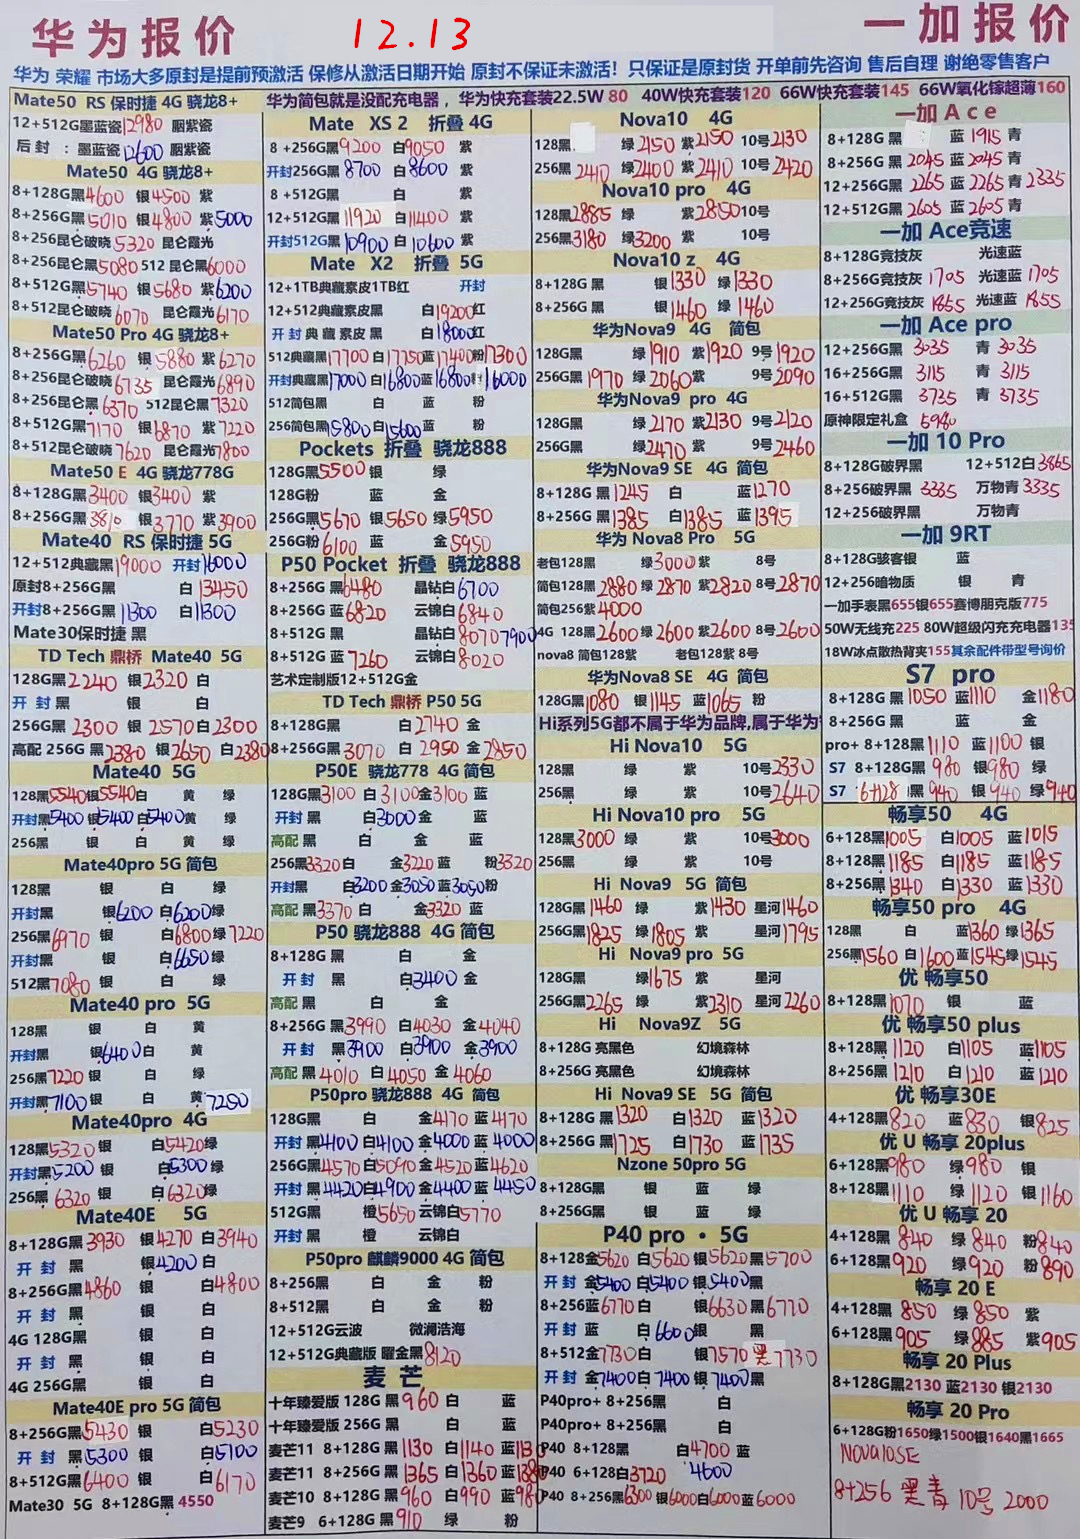 华为报价
12.13
一加报价
华为 荣耀 市场大多原封是提前预激活 保修从激活日期开始 原封不保证未激活！只保证是原封货 开单前先咨询 售后自理 谢绝零售客户
华为简包就是没配充电器，华为快充套装22.5W 80 40W快充套装120 66W快充套装145 66W氧化镓超薄160
Mate50 RS 保时捷 4G 骁龙8+
12+512G墨蓝瓷12980 胭紫瓷
后封 : 墨蓝瓷12600 胭紫瓷
Mate50 4G 骁龙8+
8+128G黑4600 银4500 紫
8+256G黑5010 银4800 紫5000
8+256昆仑破晓5320 昆仑霞光
8+256昆仑黑5080 512 昆仑黑6000
8+512G黑5740 银5680 紫6200
8+512昆仑破晓6070 昆仑霞光6170
Mate50 Pro 4G 骁龙8+
8+256G黑6260 银5880 紫6270
8+256昆仑破晓6735 昆仑霞光6890
8+256昆仑黑6370 512昆仑黑7320
8+512G黑7170 银6870 紫7220
8+512昆仑破晓7620 昆仑霞光7800
Mate50 E 4G 骁龙778G
8+128G黑3400 银3400 紫
8+256G黑3810 银3770 紫3900
Mate40 RS 保时捷 5G
12+512典藏黑19000 开封16000
原封8+256G黑 白13450
开封8+256G黑11300 白11300
Mate30保时捷 黑
TD Tech 鼎桥 Mate40 5G
128G黑2240 银2320 白
开 封 黑 银 白
256G黑2300 银2570 白2300
高配 256G 黑2380 银2650 白2380
Mate40 5G
128黑5540银5540白 黄 绿
开封黑5400银5400白5400黄 绿
256黑 银 白 黄 绿
Mate40pro 5G 简包
128黑 银 白 绿
开封黑 银6200 白6200绿
256黑6970 白6800绿7220
开封黑 银 白6650绿
512黑7080 银 白 绿
Mate40 pro 5G
128黑 银 白 黄
开封黑 银6400白 黄
256黑7220银 白 绿
开封黑7100银 白 黄7250
Mate40pro 4G
128黑5320银 白5420绿
开封黑5200银 白5300绿
256黑6320银 白6320绿
Mate40E 5G
8+128G黑3930 银4270 白3940
开 封 黑 银4200白
8+256G黑4860 银 白4800
开 封 黑 银 白
4G 128G黑 银 白
开 封 黑 银 白
4G 256G黑 银 白
Mate40E pro 5G 简包
8+256G黑5430 银 白5230
开 封 黑5300 银 白5100
8+512G黑6400 银 白6170
Mate30 5G 8+128G黑 4550
Mate XS 2 折叠 4G
8 +256G黑9200 白9050 紫
开封256G黑8700 白8600 紫
8 +512G黑 白 紫
12+512G黑11920 白11400 紫
开封512G黑10900 白10600 紫
Mate X2 折叠 5G
12+1TB典藏素皮1TB红 开封
12+512典藏素皮黑 白19200红
开 封 典 藏 素皮 黑 白18000红
512典藏黑17700白17750蓝17400粉17300
开封典藏黑17000白16800蓝16800 16000
512简包黑 白 蓝 粉
256简包黑15800白15600蓝 粉
Pockets 折叠 骁龙888
128G黑5500银 绿
128G粉 蓝 金
256G黑5670 银5650绿5950
256G粉6100 蓝 金5950
P50 Pocket 折叠 骁龙888
8+256G 黑6480 晶钻白6700
8+256G 蓝6820 云锦白6840
8+512G 黑 晶钻白8070 7900
8+512G 蓝7260 云锦白8020
艺术定制版12+512G金
TD Tech 鼎桥 P50 5G
8+128G黑 白2740 金
8+256G黑3070 白2950金2850
P50E 骁龙778 4G 简包
128G黑3100 白3100金3100 蓝
开封 黑 白3000金 蓝
高配 黑 白 金 蓝
256黑3320白 金3220蓝 粉3320
开封黑 白3200金3050蓝3050粉
高配 黑3370 白 金3320蓝
P50 骁龙888 4G 简包
8+128G 黑 白 金
开 封 黑 白3400金
高配 黑 白 金
8+256G 黑3990 白4030 金4040
开 封 黑3900 白3900 金3900
高配 黑4010 白4050 金4060
P50pro 骁龙888 4G 简包
128G黑 白 金4170蓝4170
开 封 黑4100白4100金4000蓝4000
256G黑4570白5090金4520蓝4620
开 封 黑4420白4900金4400蓝4450
512G黑 橙5650云锦白5770
开封 黑 橙 云锦白
P50pro 麒麟9000 4G 简包
8+256黑 白 金 粉
8+512黑 白 金 粉
12+512G云波 微澜浩海
12+512G典藏版 曜金黑8120
麦 芒
十年臻爱版 128G 黑960 白 蓝
十年臻爱版 256G 黑 白 蓝
麦芒11 8+128G 黑1130 白1140蓝1130
麦芒11 8+256G 黑1365 白1360蓝1380
麦芒10 8+128G 黑960 白990 蓝980
麦芒9 6+128G 黑910 绿 粉
Nova10 4G
128黑 绿2150紫2150 10号2130
256黑2410 绿2400紫2410 10号2420
Nova10 pro 4G
128黑2885 绿 紫2850 10号
256黑3180 绿3200 紫 10号
Nova10 z 4G
8+128G 黑 银1330 绿1330
8+256G 黑 银1460 绿1460
华为Nova9 4G 简包
128G黑 绿1910 紫1920 9号1920
256G黑1970 绿2060紫 9号2090
华为Nova9 pro 4G
128G黑 绿2170紫2130 9号2120
256G黑 绿2470紫 9号2460
华为Nova9 SE 4G 简包
8+128G 黑1245 白 蓝1270
8+256G 黑1385 白1385 蓝1395
华为 Nova8 Pro 5G
老包128黑 绿3000紫 8号
简包128黑2880 绿2870 紫2820 8号2870
简包256紫4000
4G 128黑2600绿2600紫2600 8号2600
nova8 简包128紫 老包128紫 8号
华为Nova8 SE 4G 简包
128G黑1080 银1145 蓝1065 粉
Hi系列5G都不属于华为品牌,属于华为
Hi Nova10 5G
128黑 绿 紫 10号2330
256黑 绿 紫 10号2640
Hi Nova10 pro 5G
128黑3000绿 紫 10号3000
256黑 绿 紫 10号
Hi Nova9 5G 简包
128G黑1460 绿 紫1430 星河1460
256G黑1825 绿1805 紫 星河1795
Hi Nova9 pro 5G
128G黑 绿1675 紫 星河
256G黑2265 绿 紫2310 星河2260
Hi Nova9Z 5G
8+128G 亮黑色 幻境森林
8+256G 亮黑色 幻境森林
Hi Nova9 SE 5G 简包
8+128G 黑1320 白1320 蓝1320
8+256G 黑1725 白1730 蓝1735
Nzone 50pro 5G
8+128G黑 银 蓝 绿
8+256G黑 银 蓝 绿
P40 pro · 5G
8+128金5620 白5620银5620黑5700
开 封 金5400白5400银5400黑
8+256蓝6770白 银6630 黑6770
开 封 蓝 白6600银 黑
8+512金7730白 银7570 黑7730
开 封 金7400白7400银7400黑
P40pro+ 8+256黑 白
P40pro+ 8+256黑 白
P40 8+128黑 白4700 蓝
P40 6+128白3720 4600
P40 8+256黑6300银6000白6000蓝6000
一加 Ace
8+128G 黑 蓝1915青
8+256G 黑2045 蓝2045青
12+256G黑2265 蓝2265青2335
12+512G黑2605 蓝2605青
一加 Ace竞速
8+128G竞技灰 光速蓝
8+256G竞技灰1705 光速蓝1705
12+256G竞技灰1855 光速蓝1855
一加 Ace pro
12+256G黑3035 青3035
16+256G黑3115 青3115
16+512G黑3735 青3735
原神限定礼盒5980
一加 10 Pro
8+128G破界黑 12+512白3865
8+256破界黑3335 万物青3335
12+256破界黑 万物青
一加 9RT
8+128G骇客银 蓝
12+256暗物质 银 青
一加手表黑655银655赛博朋克版775
50W无线充225 80W超级闪充充电器135
18W冰点散热背夹155其余配件带型号询价
S7 pro
8+128G 黑1050 蓝1110 金1180
8+256G 黑 蓝 金
pro+ 8+128黑1110 蓝1100银
S7 8+128G黑980 银980 绿
S7 6+128 黑940 银940 绿940
畅享50 4G
6+128黑1005 白1005 蓝1015
8+128黑1185 白1185 蓝1185
8+256黑1340 白1330 蓝1330
畅享50 pro 4G
128黑 白 蓝1360绿1365
256黑1560白1600蓝1545绿1545
优 畅享50
8+128黑1070 银 蓝
优 畅享50 plus
8+128黑1120 白1105 蓝1105
8+256黑1210 白1210 蓝1210
优 畅享30E
4+128黑820 蓝830 银825
优 U 畅享 20plus
6+128黑980 绿980 银
8+128黑1110 绿1120 银1160
优 U 畅享 20
4+128黑840 绿840 粉840
6+128黑920 绿920 粉890
畅享 20 E
4+128黑850 绿850 紫
6+128黑905 绿885 紫905
畅享 20 Plus
8+128G黑2130 蓝2130 银2130
畅享 20 Pro
6+128G粉1650绿1500银1640黑1665
Nova10SE
8+256 黑青 10号 2000